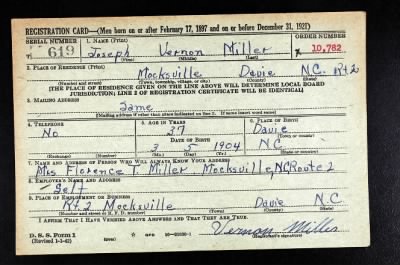 REGISTRATION CARD—(Men born on or after February 17, 1897 and on or before December 31, 1921)
SERIAL NUMBER 1. NAME (Print) ORDER NUMBER
619 Joseph Vernon Miller 10,782
(First) (Middle) (Last)
2. PLACE OF RESIDENCE (Print)
Mocksville Davie N.C. Rt 2
(Number and street) (Town, township, village, or city) (County) (State)
[THE PLACE OF RESIDENCE GIVEN ON THE LINE ABOVE WILL DETERMINE LOCAL BOARD
JURISDICTION; LINE 2 OF REGISTRATION CERTIFICATE WILL BE IDENTICAL]
3. MAILING ADDRESS
Same
[Mailing address if other than place indicated on line 2. If same insert word same]
4. TELEPHONE 5. AGE IN YEARS 6. PLACE OF BIRTH
No 37 Davie
DATE OF BIRTH (Town or county)
3 5 1904 N.C.
(Exchange) (Number) (Mo.) (Day) (Yr.) (State or country)
7. NAME AND ADDRESS OF PERSON WHO WILL ALWAYS KNOW YOUR ADDRESS
Mrs Florence T. Miller Mocksville, NC Route 2
8. EMPLOYER'S NAME AND ADDRESS
Self
9. PLACE OF EMPLOYMENT OR BUSINESS
Rt 2 Mocksville Davie N.C
(Number and street or R. F. D. number) (Town) (County) (State)
I AFFIRM THAT I HAVE VERIFIED ABOVE ANSWERS AND THAT THEY ARE TRUE.
D. S. S. Form 1
(Revised 1-3-42) Vernon Miller
(Registrant's signature)